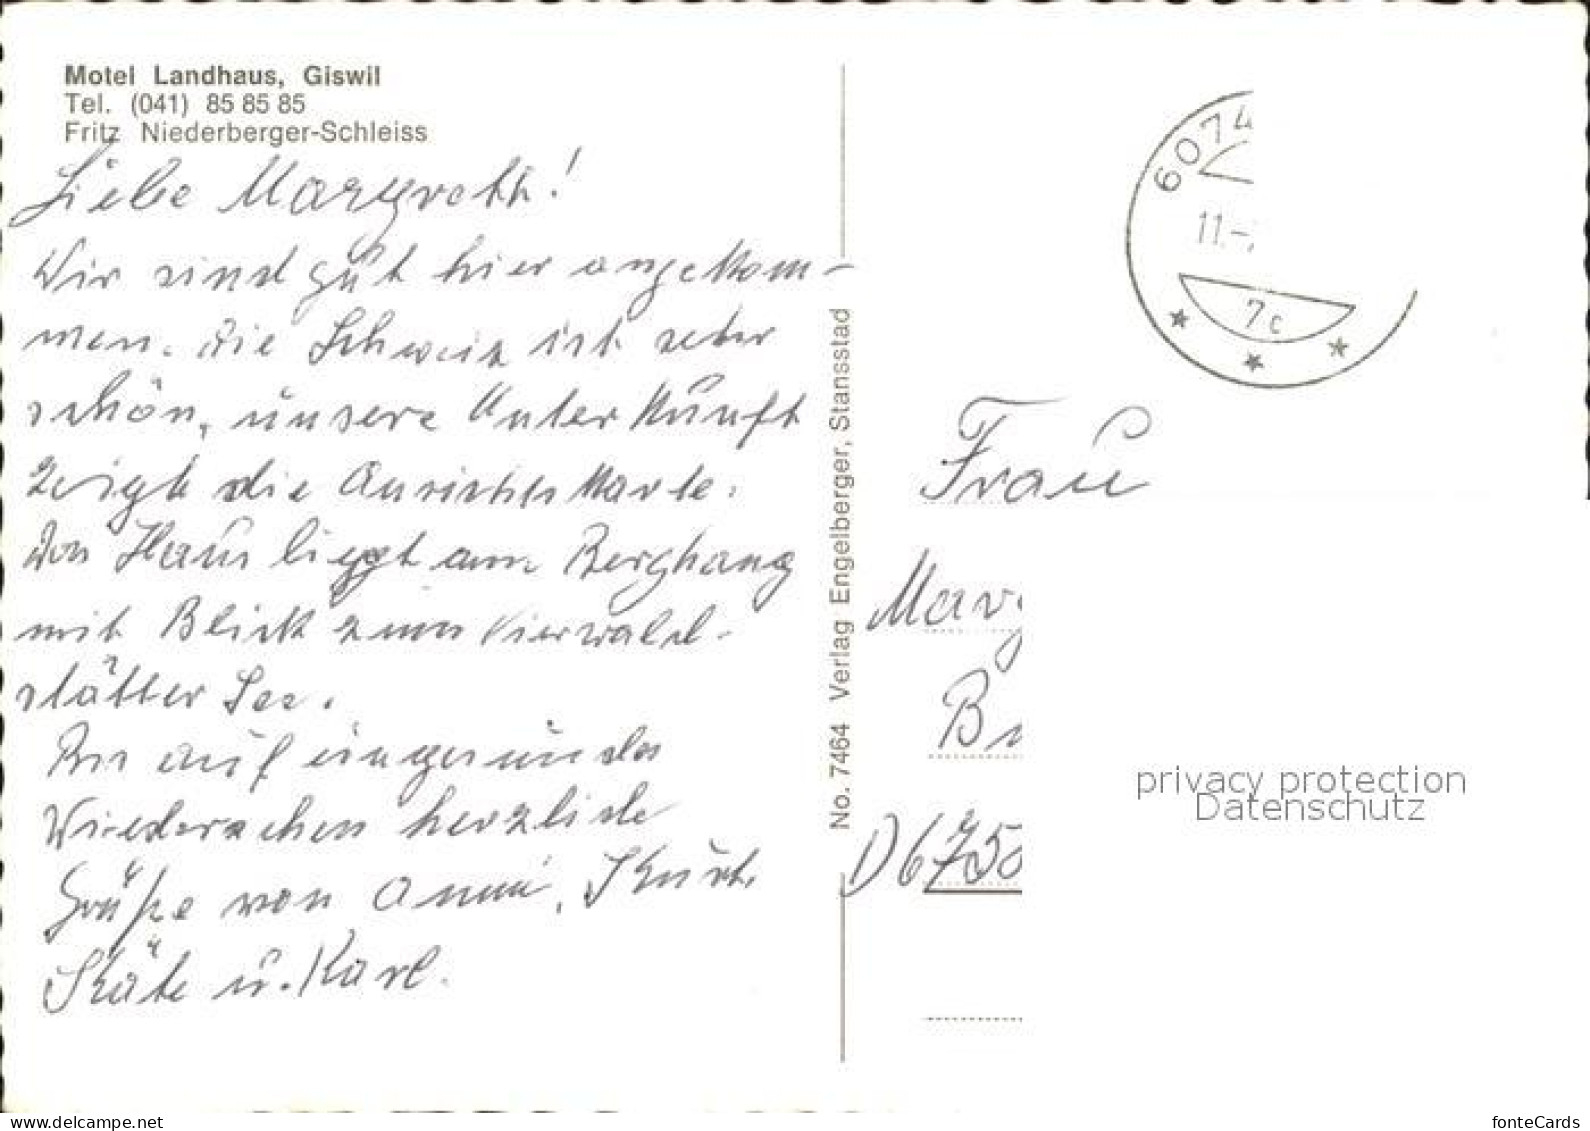 Motel Landhaus, Giswil
Tel. (041) 85 85 85
Fritz Niederberger-Schleiss
Liebe Margreth!
Wir sind gut hier angekom-
men. Die Schweiz ist sehr
schön, unsere Unterkunft
zeigt die Ansichtskarte.
Das Haus liegt am Berghang
mit Blick zum Vierwald-
stätter See.
Bis auf ein gesundes
Wiedersehen herzliche
Grüße von Anni, Kurt,
Käte u. Karl.
No. 7464 Verlag Engelberger, Stansstad
6074
11.-
7c
Frau
Marg
B
D 6750
privacy protection
Datenschutz
www.delcampe.net
fonteCards